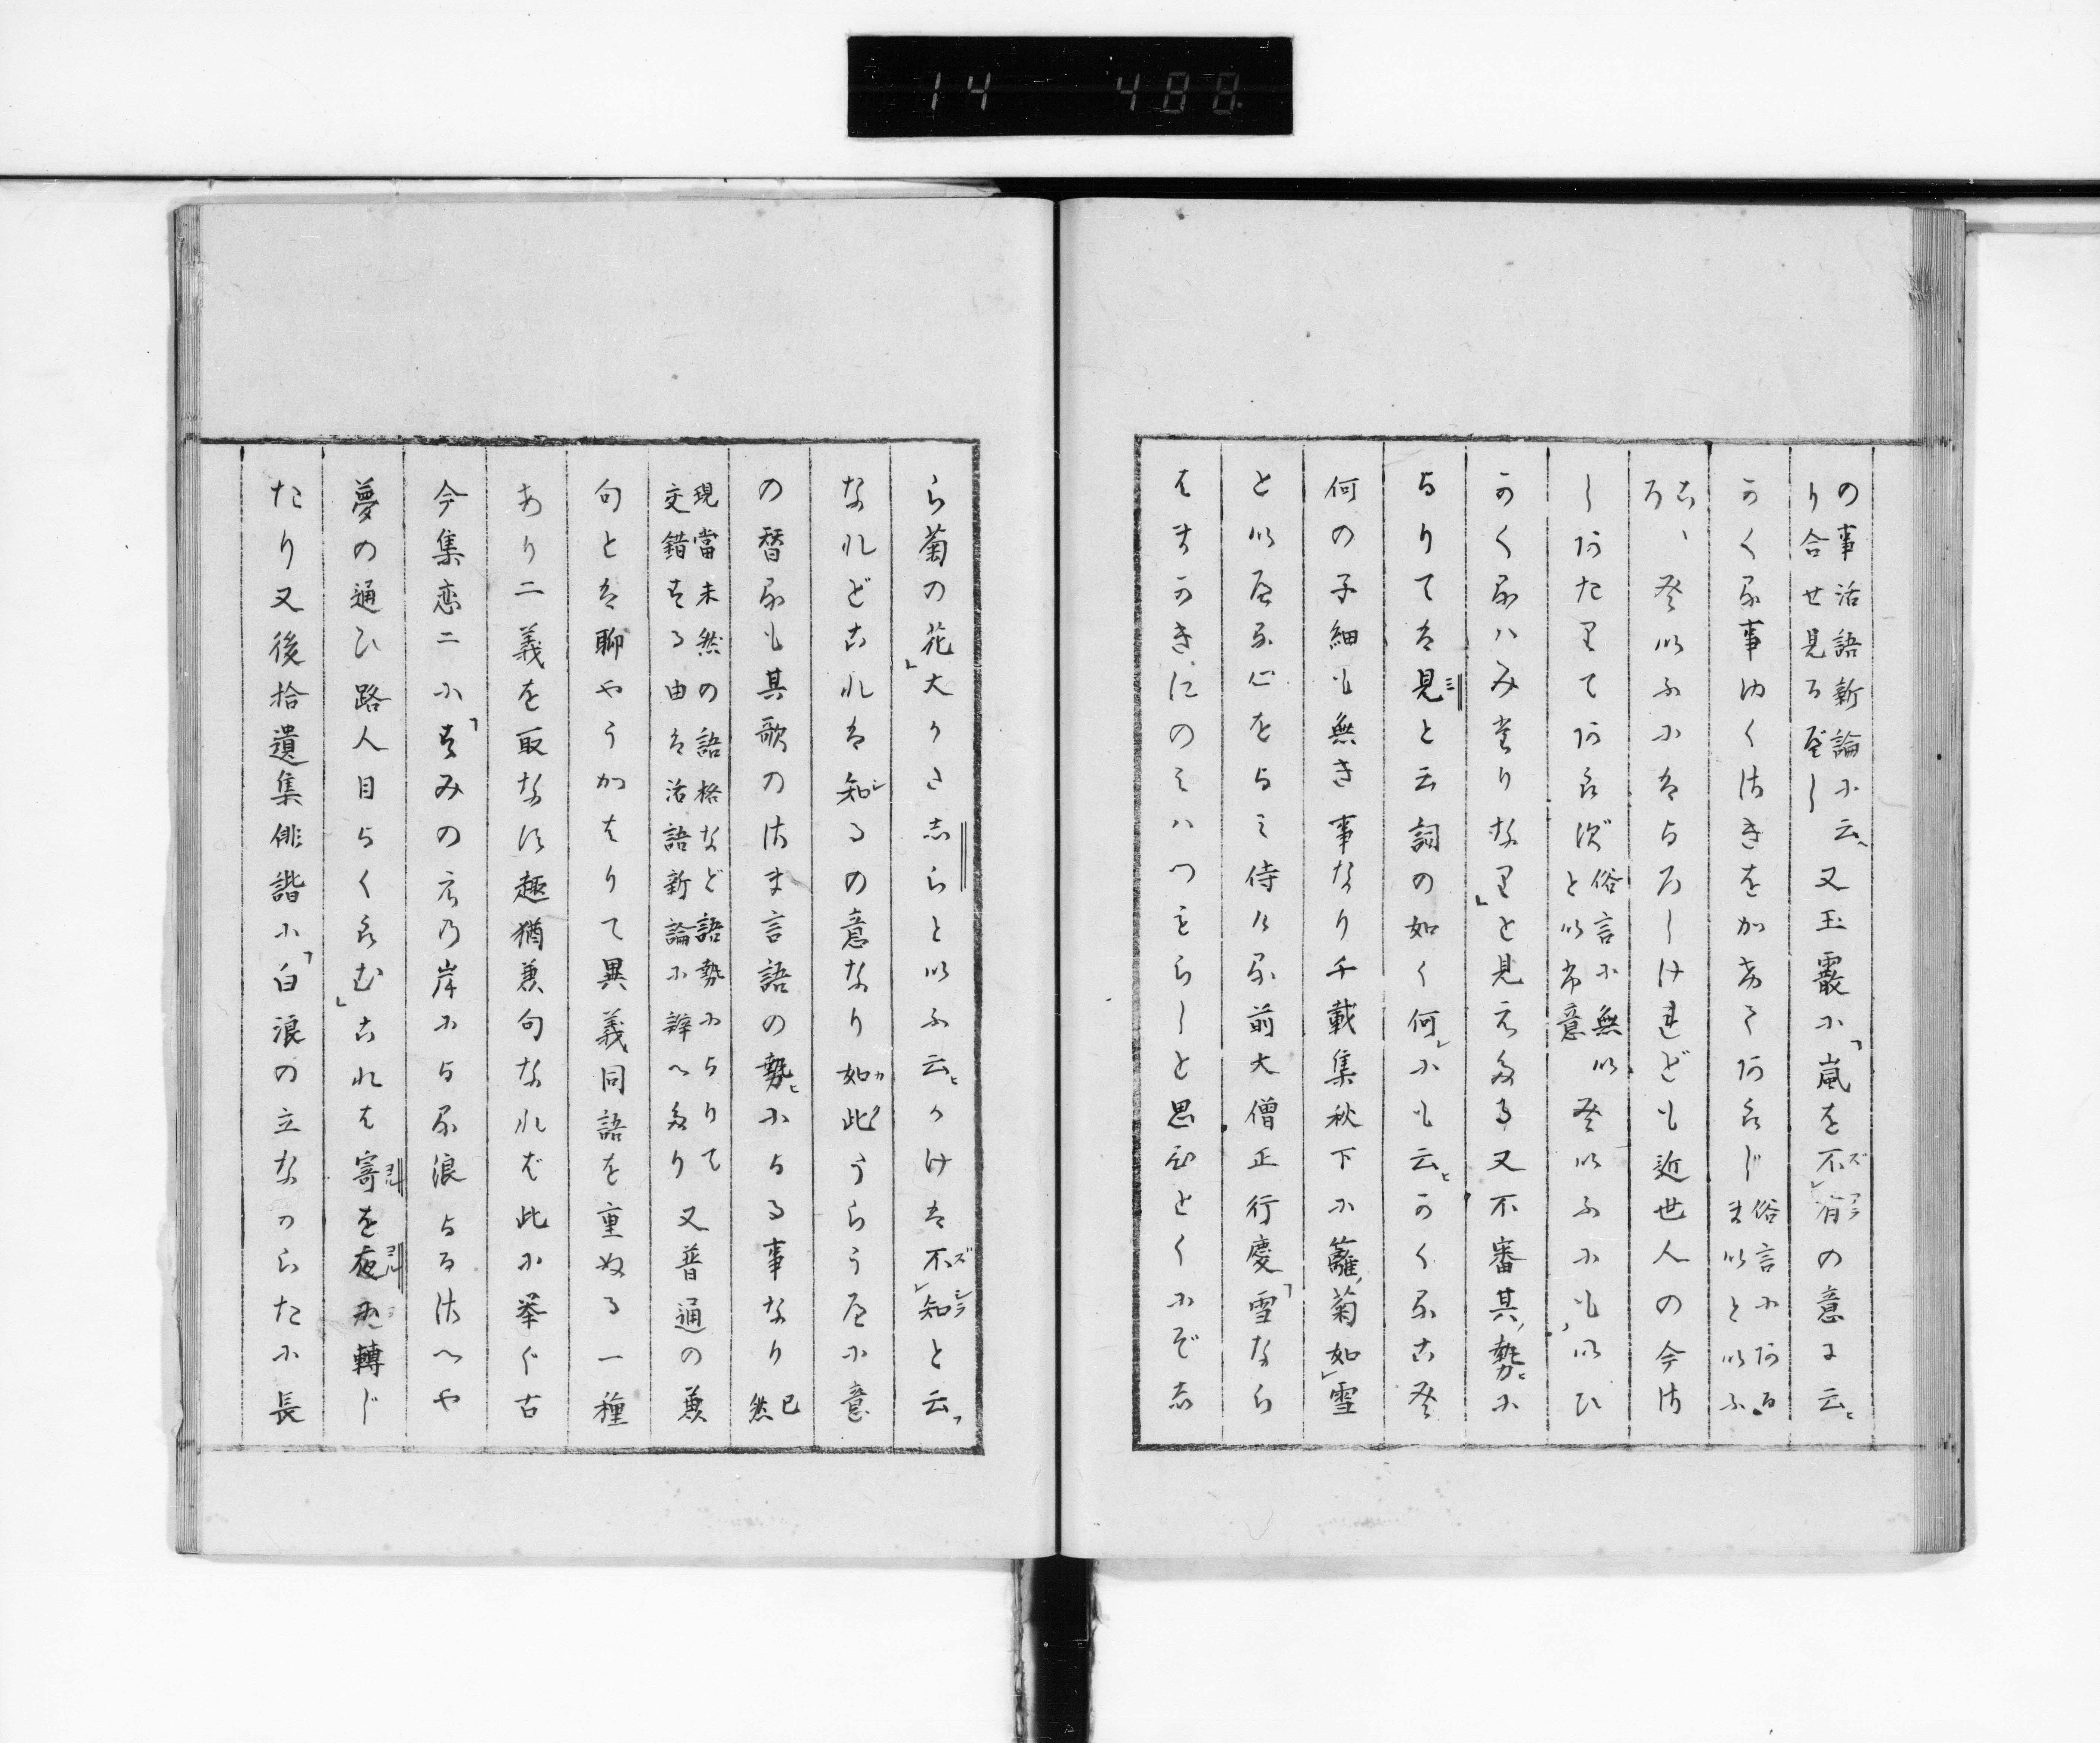 14 488
の事活語新論に云へ
り合せ見るべし
又玉霰に「嵐を不有の意に云と
かくる事ゆくさきをかねてあらじ
俗言にある
まいといふ
こゝ
ろ
をいふにはよろしけれども近世人の今さ
しあたりてあらぬ
俗言に無い
といふ意
をいふにもいひ
かくるはみだりなり」と見えたる又不審其勢に
よりては見と云詞の如く何にも云とかくるこそ
何の子細も無き事なり千載集秋下に籬菊如雪
といへる心をよみ侍ける前大僧正行慶「雪なら
ばまがきにのみはつもらじと思ひとくにぞし
ら菊の花」大かたしらといふ云かけは不知と云
なれどこれは知るの意なり如此うらうへに意
の替るも其歌のさま言語の勢による事なり
已
然
現當未然の語格など語勢によりて
交錯する由は活語新論に辨へたり
又普通の兼
句とは聊やうかはりて異義同語を重ぬる一種
あり二義を取なす趣猶兼句なれば此に挙ぐ古
今集恋二に「すみの江の岸による浪よるさへや
夢の通ひ路人目よくらむ」これは寄を夜に轉じ
たり又後拾遺集俳諧に「白浪の立ながらだに長